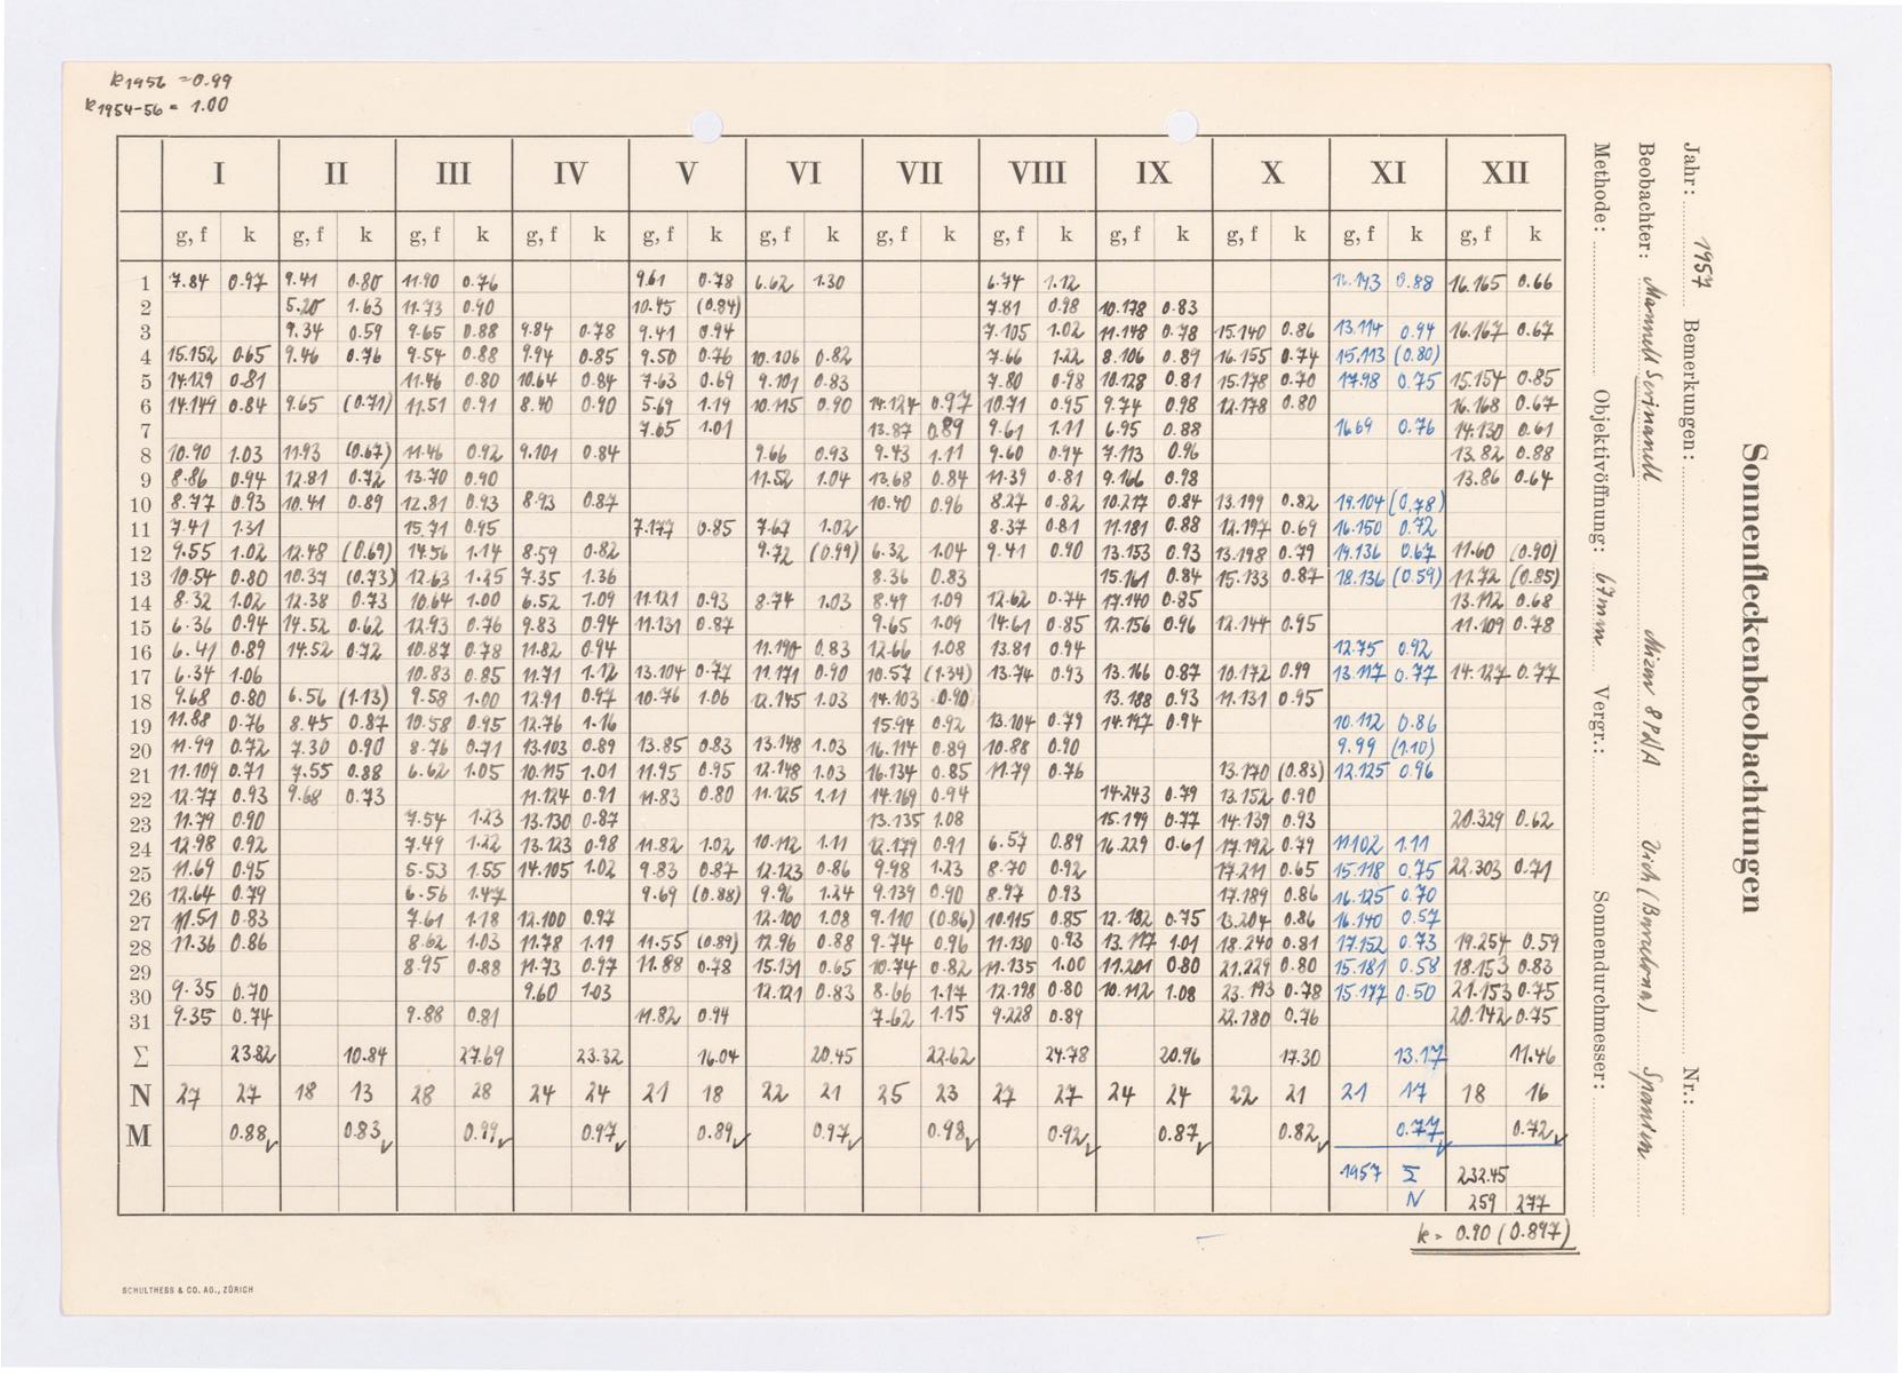 k1956 = 0.99
k1954-56 = 1.00
I II III IV V VI VII VIII IX X XI XII
g, f k g, f k g, f k g, f k g, f k g, f k g, f k g, f k g, f k g, f k g, f k g, f k
1 7.84 0.97 9.41 0.80 11.90 0.76 9.61 0.78 6.62 1.30 6.74 1.12 16.143 0.88 16.165 0.66
2 5.20 1.63 11.73 0.90 10.45 (0.84) 7.81 0.98 10.178 0.83
3 9.34 0.59 9.65 0.88 9.84 0.78 9.41 0.94 7.105 1.02 11.148 0.78 15.140 0.86 13.114 0.94 16.167 0.67
4 15.152 0.65 9.46 0.76 9.54 0.88 9.94 0.85 9.50 0.76 10.106 0.82 7.66 1.22 8.106 0.89 16.155 0.74 15.113 (0.80)
5 14.129 0.81 11.46 0.80 10.64 0.84 7.63 0.69 9.101 0.83 7.80 0.98 10.128 0.81 15.178 0.70 17.98 0.75 15.154 0.85
6 14.149 0.84 9.65 (0.71) 11.51 0.91 8.40 0.90 5.69 1.19 10.115 0.90 14.124 0.97 10.71 0.95 9.74 0.98 12.178 0.80 16.168 0.67
7 7.65 1.01 13.87 0.89 9.61 1.11 6.95 0.88 16.69 0.76 14.130 0.61
8 10.90 1.03 11.93 (0.67) 11.46 0.92 9.101 0.84 9.66 0.93 9.43 1.11 9.60 0.94 7.113 0.96 13.82 0.88
9 8.86 0.94 12.81 0.72 13.70 0.90 11.52 1.04 13.68 0.84 11.39 0.81 9.166 0.98 13.86 0.64
10 8.77 0.93 10.41 0.89 12.81 0.93 8.93 0.87 10.40 0.96 8.27 0.82 10.217 0.84 13.199 0.82 19.104 (0.78)
11 7.41 1.31 15.71 0.95 7.177 0.85 7.67 1.02 8.37 0.81 11.181 0.88 12.197 0.69 16.150 0.72
12 9.55 1.02 12.48 (0.69) 14.56 1.14 8.59 0.82 9.72 (0.99) 6.32 1.04 9.41 0.90 13.153 0.93 13.198 0.79 19.136 0.67 11.60 (0.90)
13 10.54 0.80 10.37 (0.73) 12.63 1.25 7.35 1.36 8.36 0.83 15.161 0.84 15.133 0.87 18.136 (0.59) 11.72 (0.85)
14 8.32 1.02 12.38 0.73 10.64 1.00 6.52 1.09 11.121 0.93 8.74 1.03 8.49 1.09 12.62 0.74 17.140 0.85 13.112 0.68
15 6.36 0.94 14.52 0.62 12.93 0.76 9.83 0.94 11.131 0.87 9.65 1.09 14.61 0.85 12.156 0.96 12.144 0.95 11.109 0.78
16 6.41 0.89 14.52 0.72 10.87 0.78 11.82 0.94 11.190 0.83 12.66 1.08 13.81 0.94 12.75 0.92
17 6.34 1.06 10.83 0.85 11.71 1.12 13.104 0.77 11.171 0.90 10.57 (1.34) 13.74 0.93 13.166 0.87 10.172 0.99 13.117 0.77 14.127 0.77
18 9.68 0.80 6.56 (1.13) 9.58 1.00 12.91 0.97 10.76 1.06 12.145 1.03 14.103 0.90 13.188 0.93 11.131 0.95
19 11.88 0.76 8.45 0.87 10.58 0.95 12.76 1.16 15.94 0.92 13.104 0.79 14.197 0.94 10.112 0.86
20 11.99 0.72 7.30 0.90 8.76 0.71 13.103 0.89 13.85 0.83 13.148 1.03 16.114 0.89 10.88 0.90 9.99 (1.10)
21 11.109 0.71 7.55 0.88 6.62 1.05 10.115 1.01 11.95 0.95 12.148 1.03 16.134 0.85 11.79 0.76 13.170 (0.83) 12.125 0.96
22 12.77 0.93 9.68 0.73 11.124 0.91 11.83 0.80 11.125 1.11 14.169 0.94 14.243 0.79 13.152 0.90
23 11.79 0.90 7.54 1.23 13.130 0.87 13.135 1.08 15.199 0.77 14.139 0.93 20.329 0.62
24 12.98 0.92 7.49 1.22 13.123 0.98 11.82 1.02 10.112 1.11 12.179 0.91 6.57 0.89 16.229 0.61 17.192 0.79 11.102 1.11
25 11.69 0.95 5.53 1.55 14.105 1.02 9.83 0.87 12.123 0.86 9.98 1.23 8.70 0.92 17.211 0.65 15.118 0.75 22.303 0.71
26 12.64 0.79 6.56 1.47 9.69 (0.88) 9.96 1.24 9.139 0.90 8.97 0.93 17.189 0.86 16.125 0.70
27 11.51 0.83 7.61 1.18 12.100 0.97 12.100 1.08 9.110 (0.86) 10.115 0.85 12.182 0.75 13.204 0.86 16.140 0.57
28 11.36 0.86 8.62 1.03 11.78 1.19 11.55 (0.89) 12.96 0.88 9.74 0.96 11.130 0.93 13.117 1.01 18.240 0.81 17.152 0.73 19.254 0.59
29 8.95 0.88 11.73 0.97 11.88 0.78 15.131 0.65 10.74 0.82 11.135 1.00 11.201 0.80 21.229 0.80 15.181 0.58 18.153 0.83
30 9.35 0.70 9.60 1.03 12.121 0.83 8.66 1.17 12.198 0.80 10.112 1.08 23.193 0.78 15.177 0.50 21.153 0.75
31 9.35 0.74 9.88 0.81 11.82 0.94 7.62 1.15 9.228 0.89 22.180 0.76 20.142 0.75
Σ 23.82 10.84 27.69 23.32 16.04 20.45 22.62 24.78 20.96 17.30 13.17 11.46
N 27 27 18 13 28 28 24 24 21 18 22 21 25 23 27 27 24 24 22 21 21 17 18 16
M 0.88 0.83 0.99 0.97 0.89 0.97 0.98 0.92 0.87 0.82 0.77 0.72
1957 Σ 232.45
N 259 277
k = 0.90 (0.897)
SCHULTHESS & CO. AG., ZÜRICH
Sonnenfleckenbeobachtungen
Jahr: 1957 Bemerkungen: Nr.:
Beobachter: Vich (Barcelona) Spanien
Methode: Objektivöffnung: 67mm Vergr.: Sonnendurchmesser: